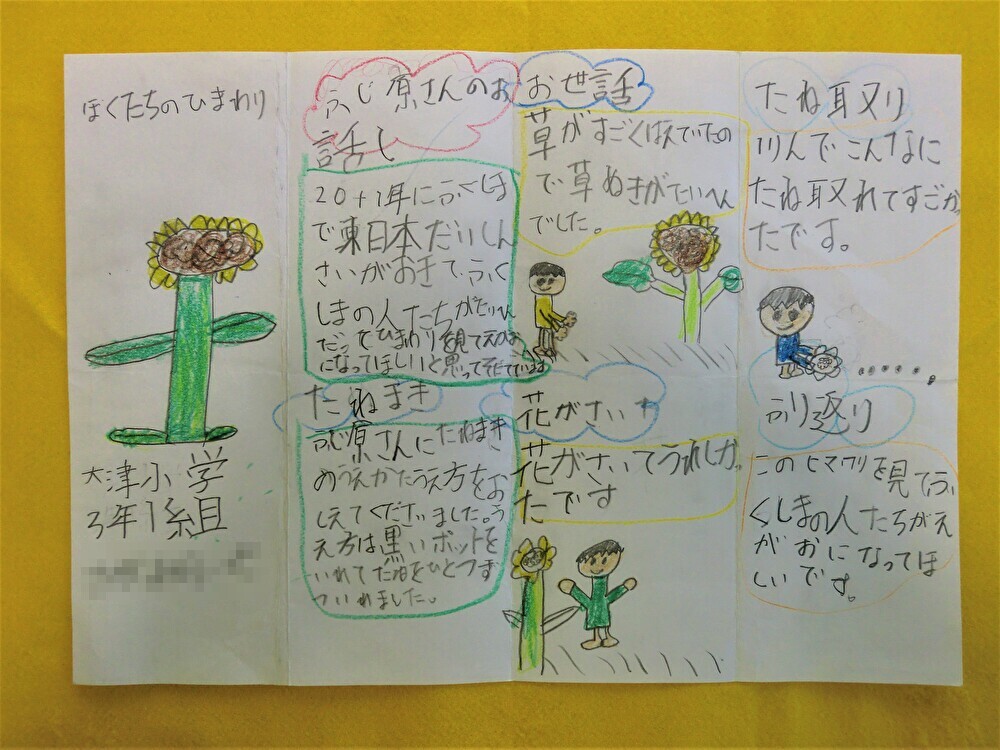 ぼくたちのひまわり
大津小学
3年1組
ふじ原さんのお
話し
2011年にふくし
で東日本だいしん
さいがおきて、ふく
しまの人たちがたいへん
だってひまわりを見てえがお
になってほしいと思ってそだてています
たねまき
ふじ原さんにたねまき
のうえかたうえ方をお
しえてくださいました。う
え方は黒いポットを
いれてたねをひとつず
ついれました。
お世話
草がすごくはえていたの
で草ぬきがたいへん
でした。
花がさいた
花がさいてうれしかっ
たです
たね取り
んでこんなに
たね取れてすごかっ
たです。
ふり返り
このヒマワリを見てふ
くしまの人たちがえ
がおになってほ
しいです。